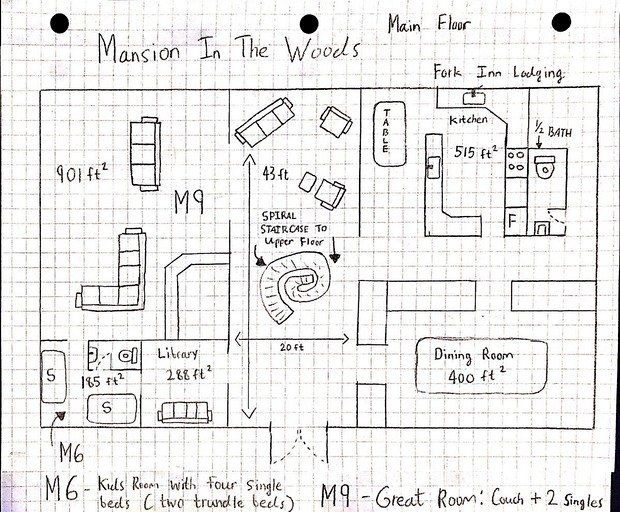 Main Floor
Mansion In The Woods
Fork Inn Lodging
TABLE
Kitchen
1/2 BATH
515 ft²
901 ft²
43 ft
M9
SPIRAL
STAIRCASE TO
Upper Floor
F
20 ft
Library
288 ft²
Dining Room
400 ft²
S
185 ft²
S
M6
M6 - Kids Room with four single
beds (two trundle beds)
M9 - Great Room: Couch + 2 Singles